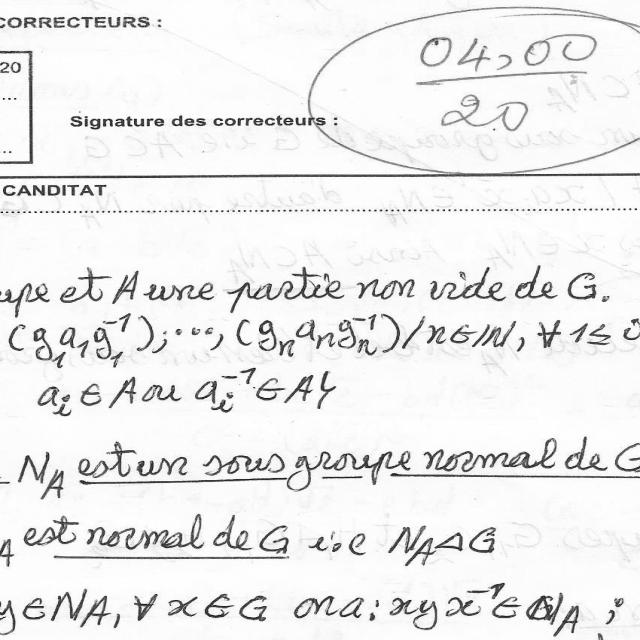 CORRECTEURS :
04,00
20
20
...
Signature des correcteurs :
...
CANDITAT
et A une partie non vide de G.
(g₁a₁g₁⁻¹);...; (gₙaₙgₙ⁻¹)/n∈ℕ, ∀ 1≤
aᵢ ∈ A ou aᵢ⁻¹ ∈ A}
N_A est un sous groupe normal de G
est normal de G i.e N_A △ G
y∈N_A, ∀ x∈G on a: xyx⁻¹∈N_A ;